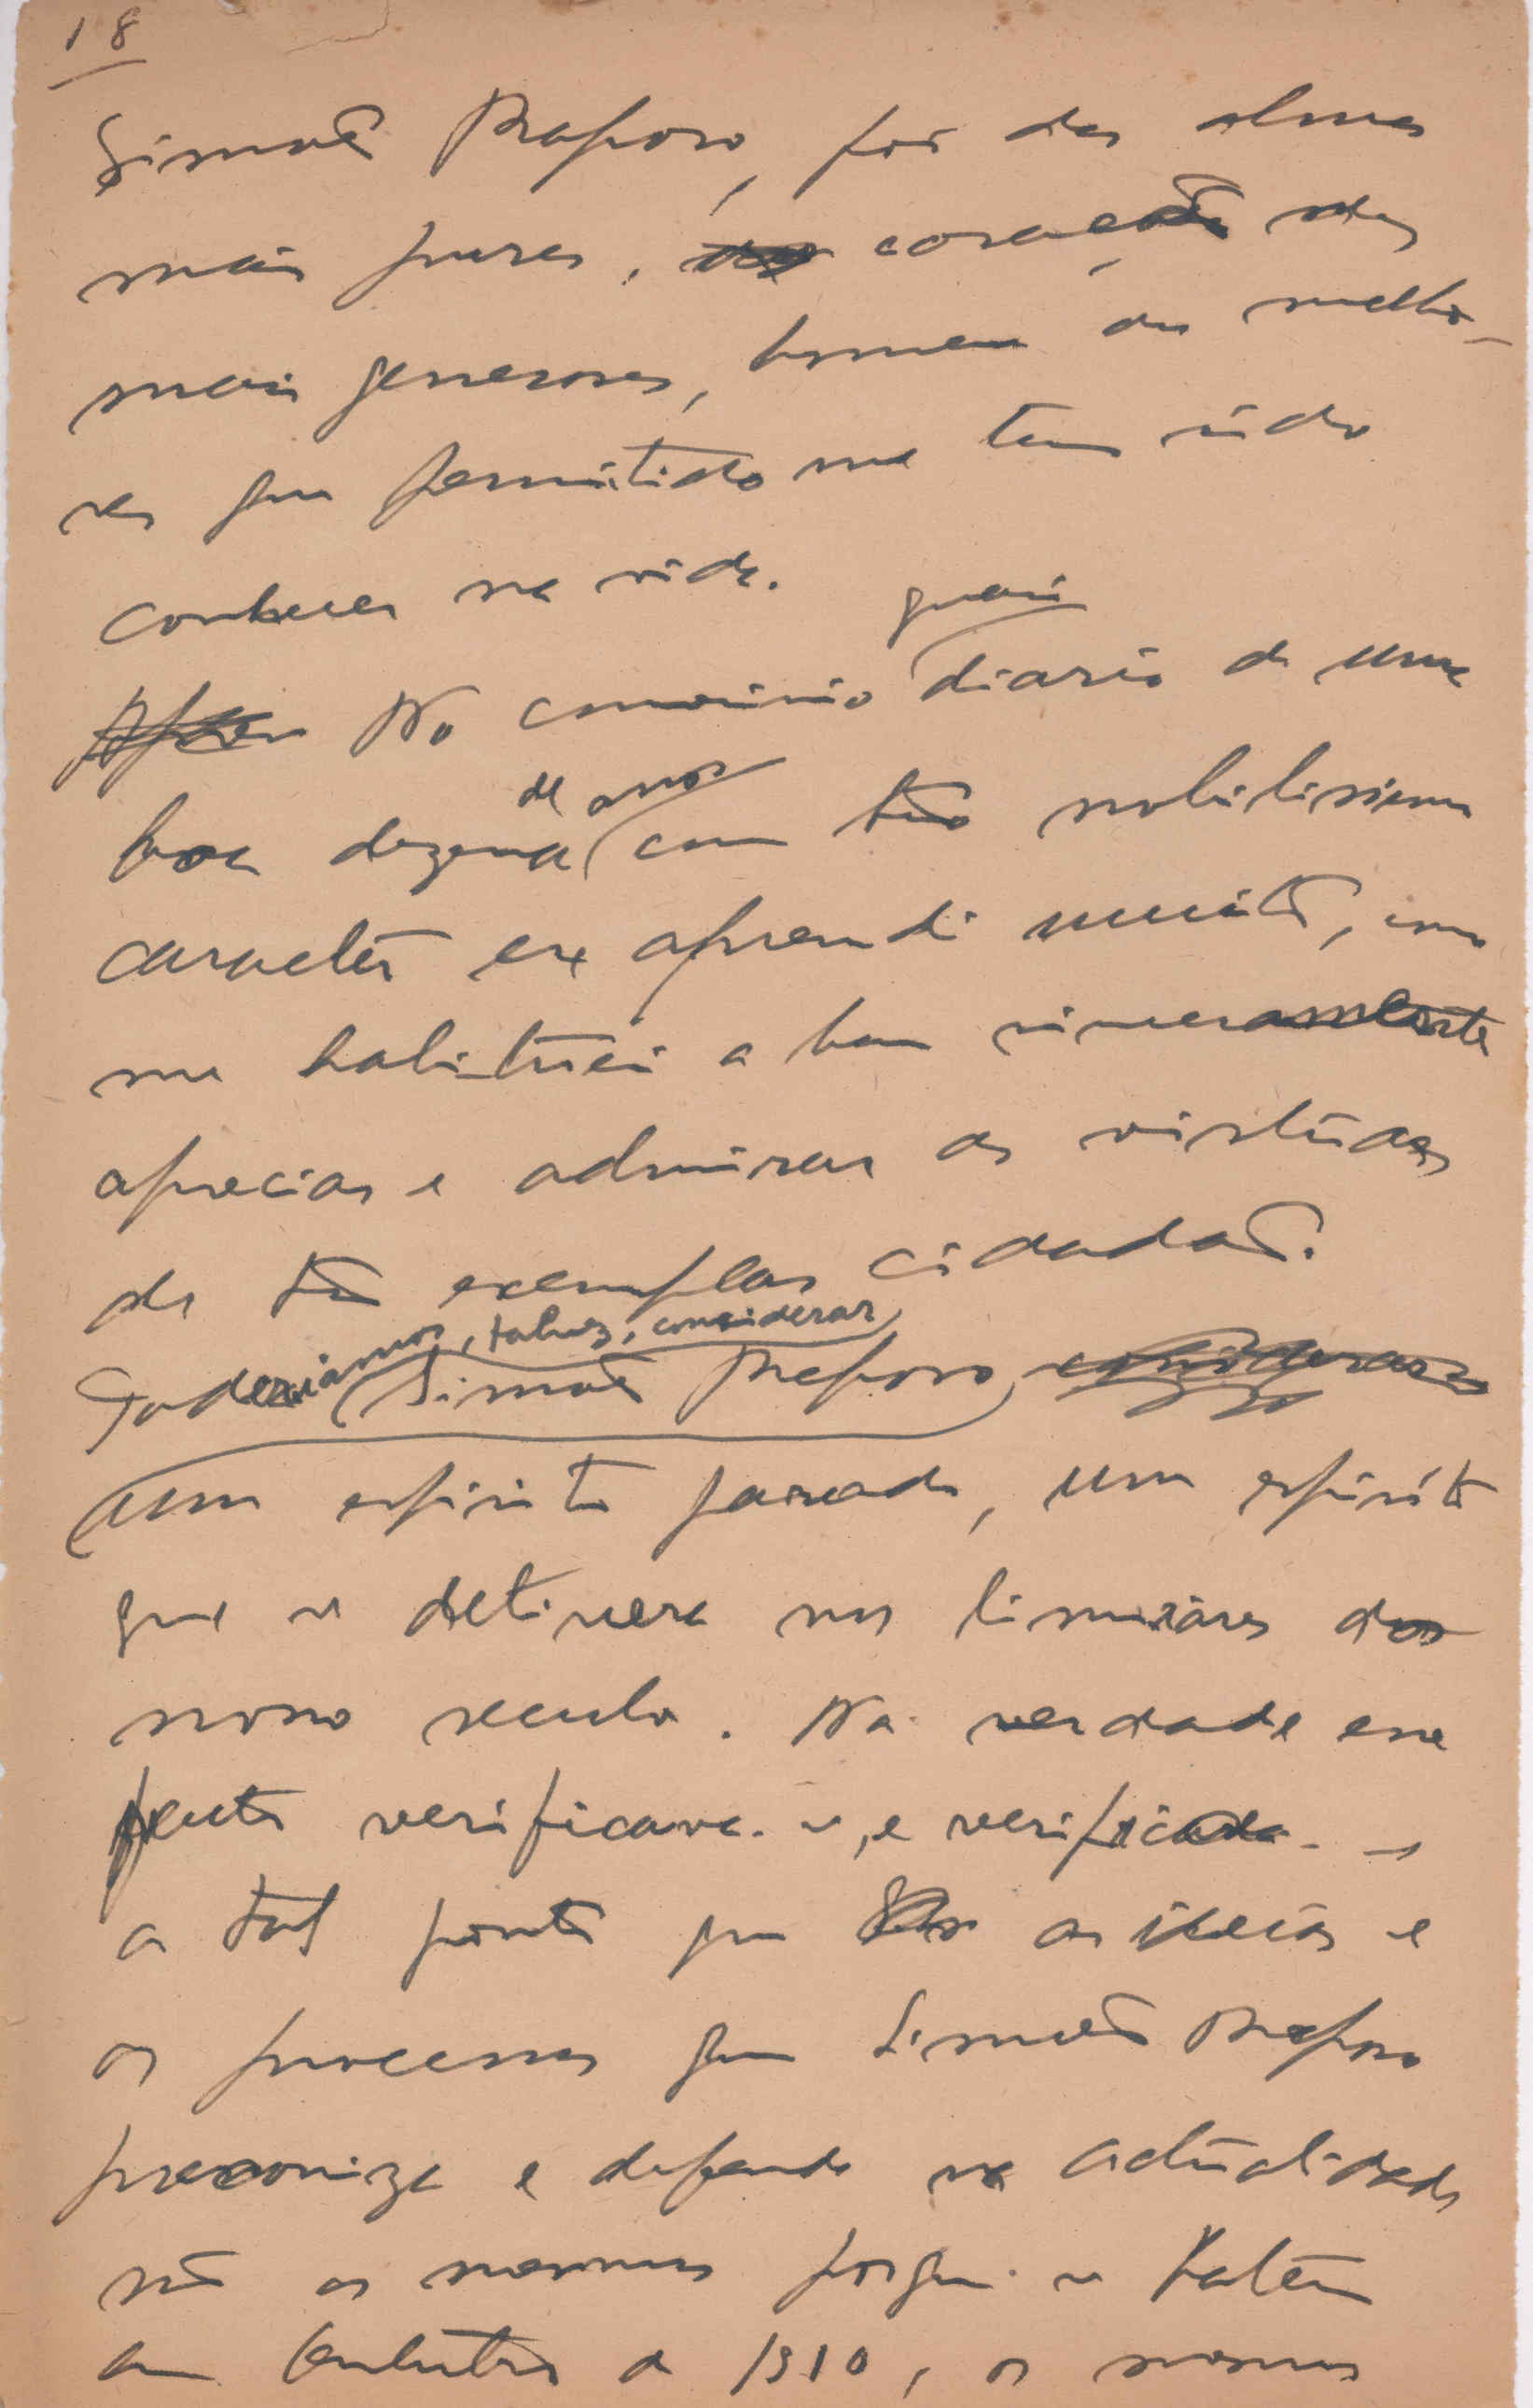 18
Simão Raposo, foi das almas
mais puras, coração dos
mais generosos, homem dos melho-
res que permitido me tem sido
conhecer na vida.
No convivio quasi diario de uma
boa dezena de anos com tão nobilissimo
caracter eu aprendi muito, como
me habituei a bem sinceramente
apreciar e admirar as virtudes
de tão exemplar cidadão.
Poderiamos, talvez, considerar Simão Raposo,
um espirito parado, um espirito
que se detivera nos limiares do
nosso seculo. Na verdade esse
facto verificava-se, e verificava-se
a tal ponto que as ideias e
os processos que Simão Raposo
preconiza e defende na actualidade
são os mesmos porque se bateu
em Outubro de 1910, os mesmos